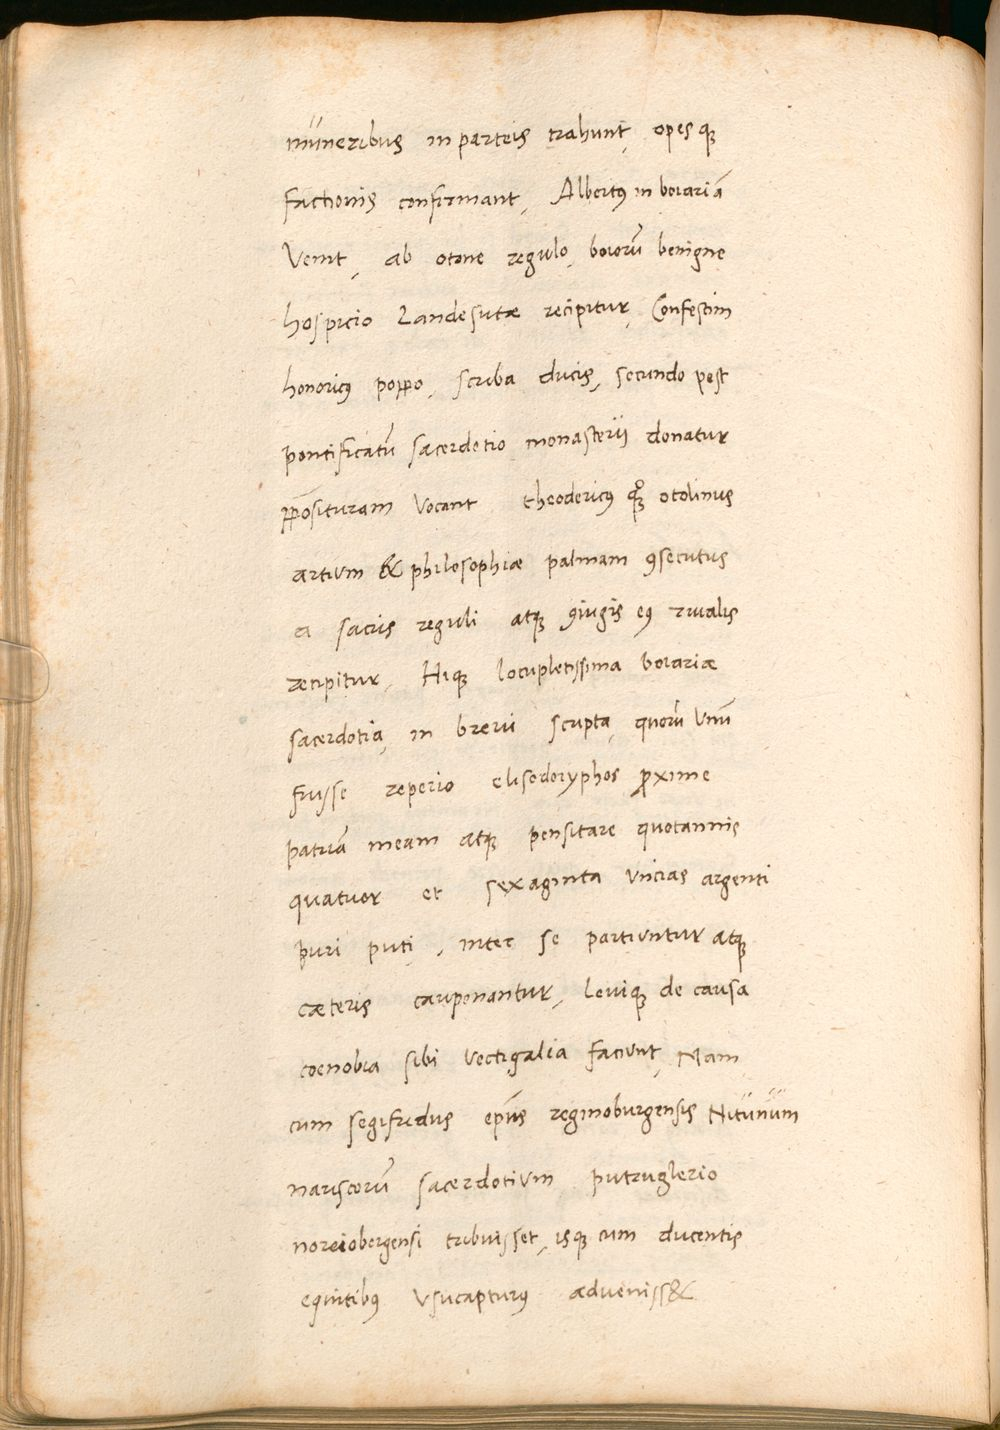 muneribus in parteis trahunt, opesqꝫ
factionis confirmant, Albertꝰ in boiariā
Venit, ab otone regulo, boiorū benigne
hospicio Landesutæ recipitur, Confestim
honoricꝰ poppo, scriba ducis, secundo post
pontificatū sacerdotio monasterij donatur
ꝓposituram vocant theodericꝰ qꝫ otolinus
artium & philosophiæ palmam ꝯsecutus
a sacris reguli atqꝫ ꝯiugis eꝰ rivalis
recipitur, Hiqꝫ locupletissima boiariæ
sacerdotia, in brevi scripta, quorū unū
fuisse reperio elisedoryphos ꝓxime
patriā meam atqꝫ pensitare quotannis
quatuor et sexaginta uncias argenti
puri puti, inter se partiuntur atqꝫ
cæteris cauponantur, leuiqꝫ de causa
coenobia sibi vectigalia faciunt, Nam
cum segifridus ep̄us reginoburgensis Nitunum
nariscorū sacerdotium putruglerio
noreiobergensi tribuisset, isqꝫ cum ducentis
equitibꝰ usucapturꝰ adveniss&